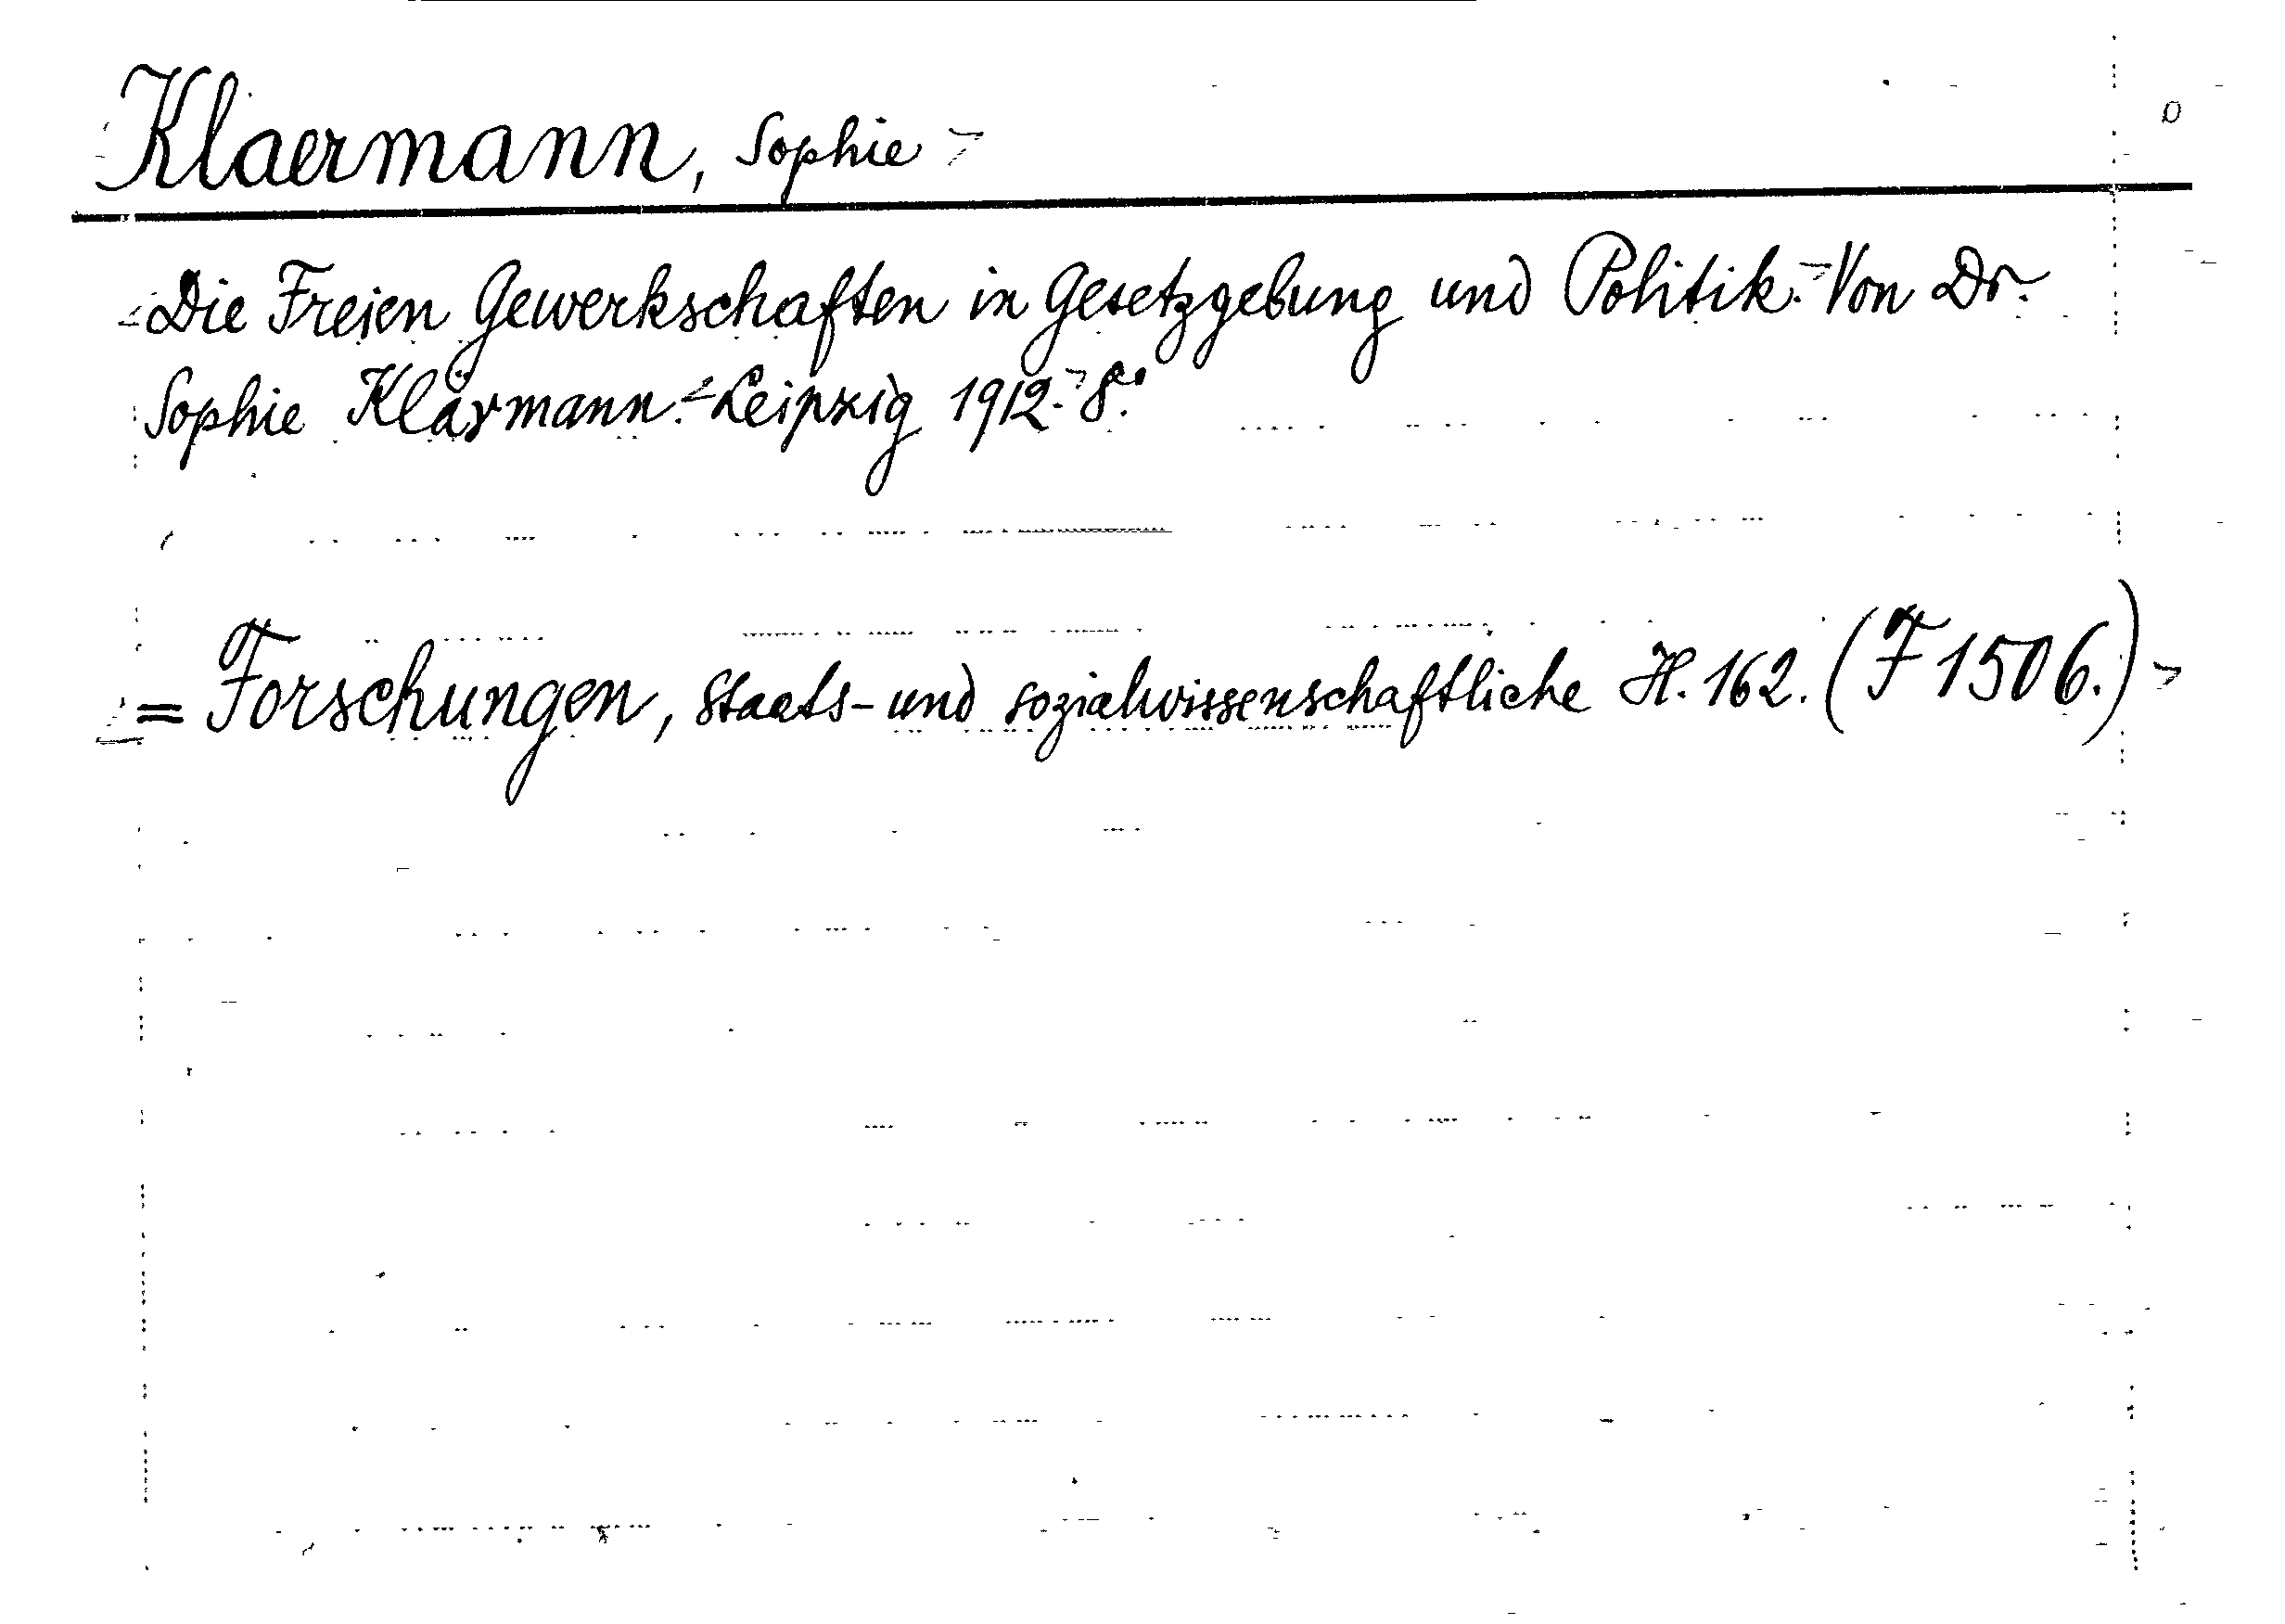 Klaermann, Sophie
Die Freien Gewerkschaften in Gesetzgebung und Politik. Von Dr.
Sophie Klärmann. Leipzig 1912. 8°.
= Forschungen, Staats- und sozialwissenschaftliche H. 162. (F 1506.)